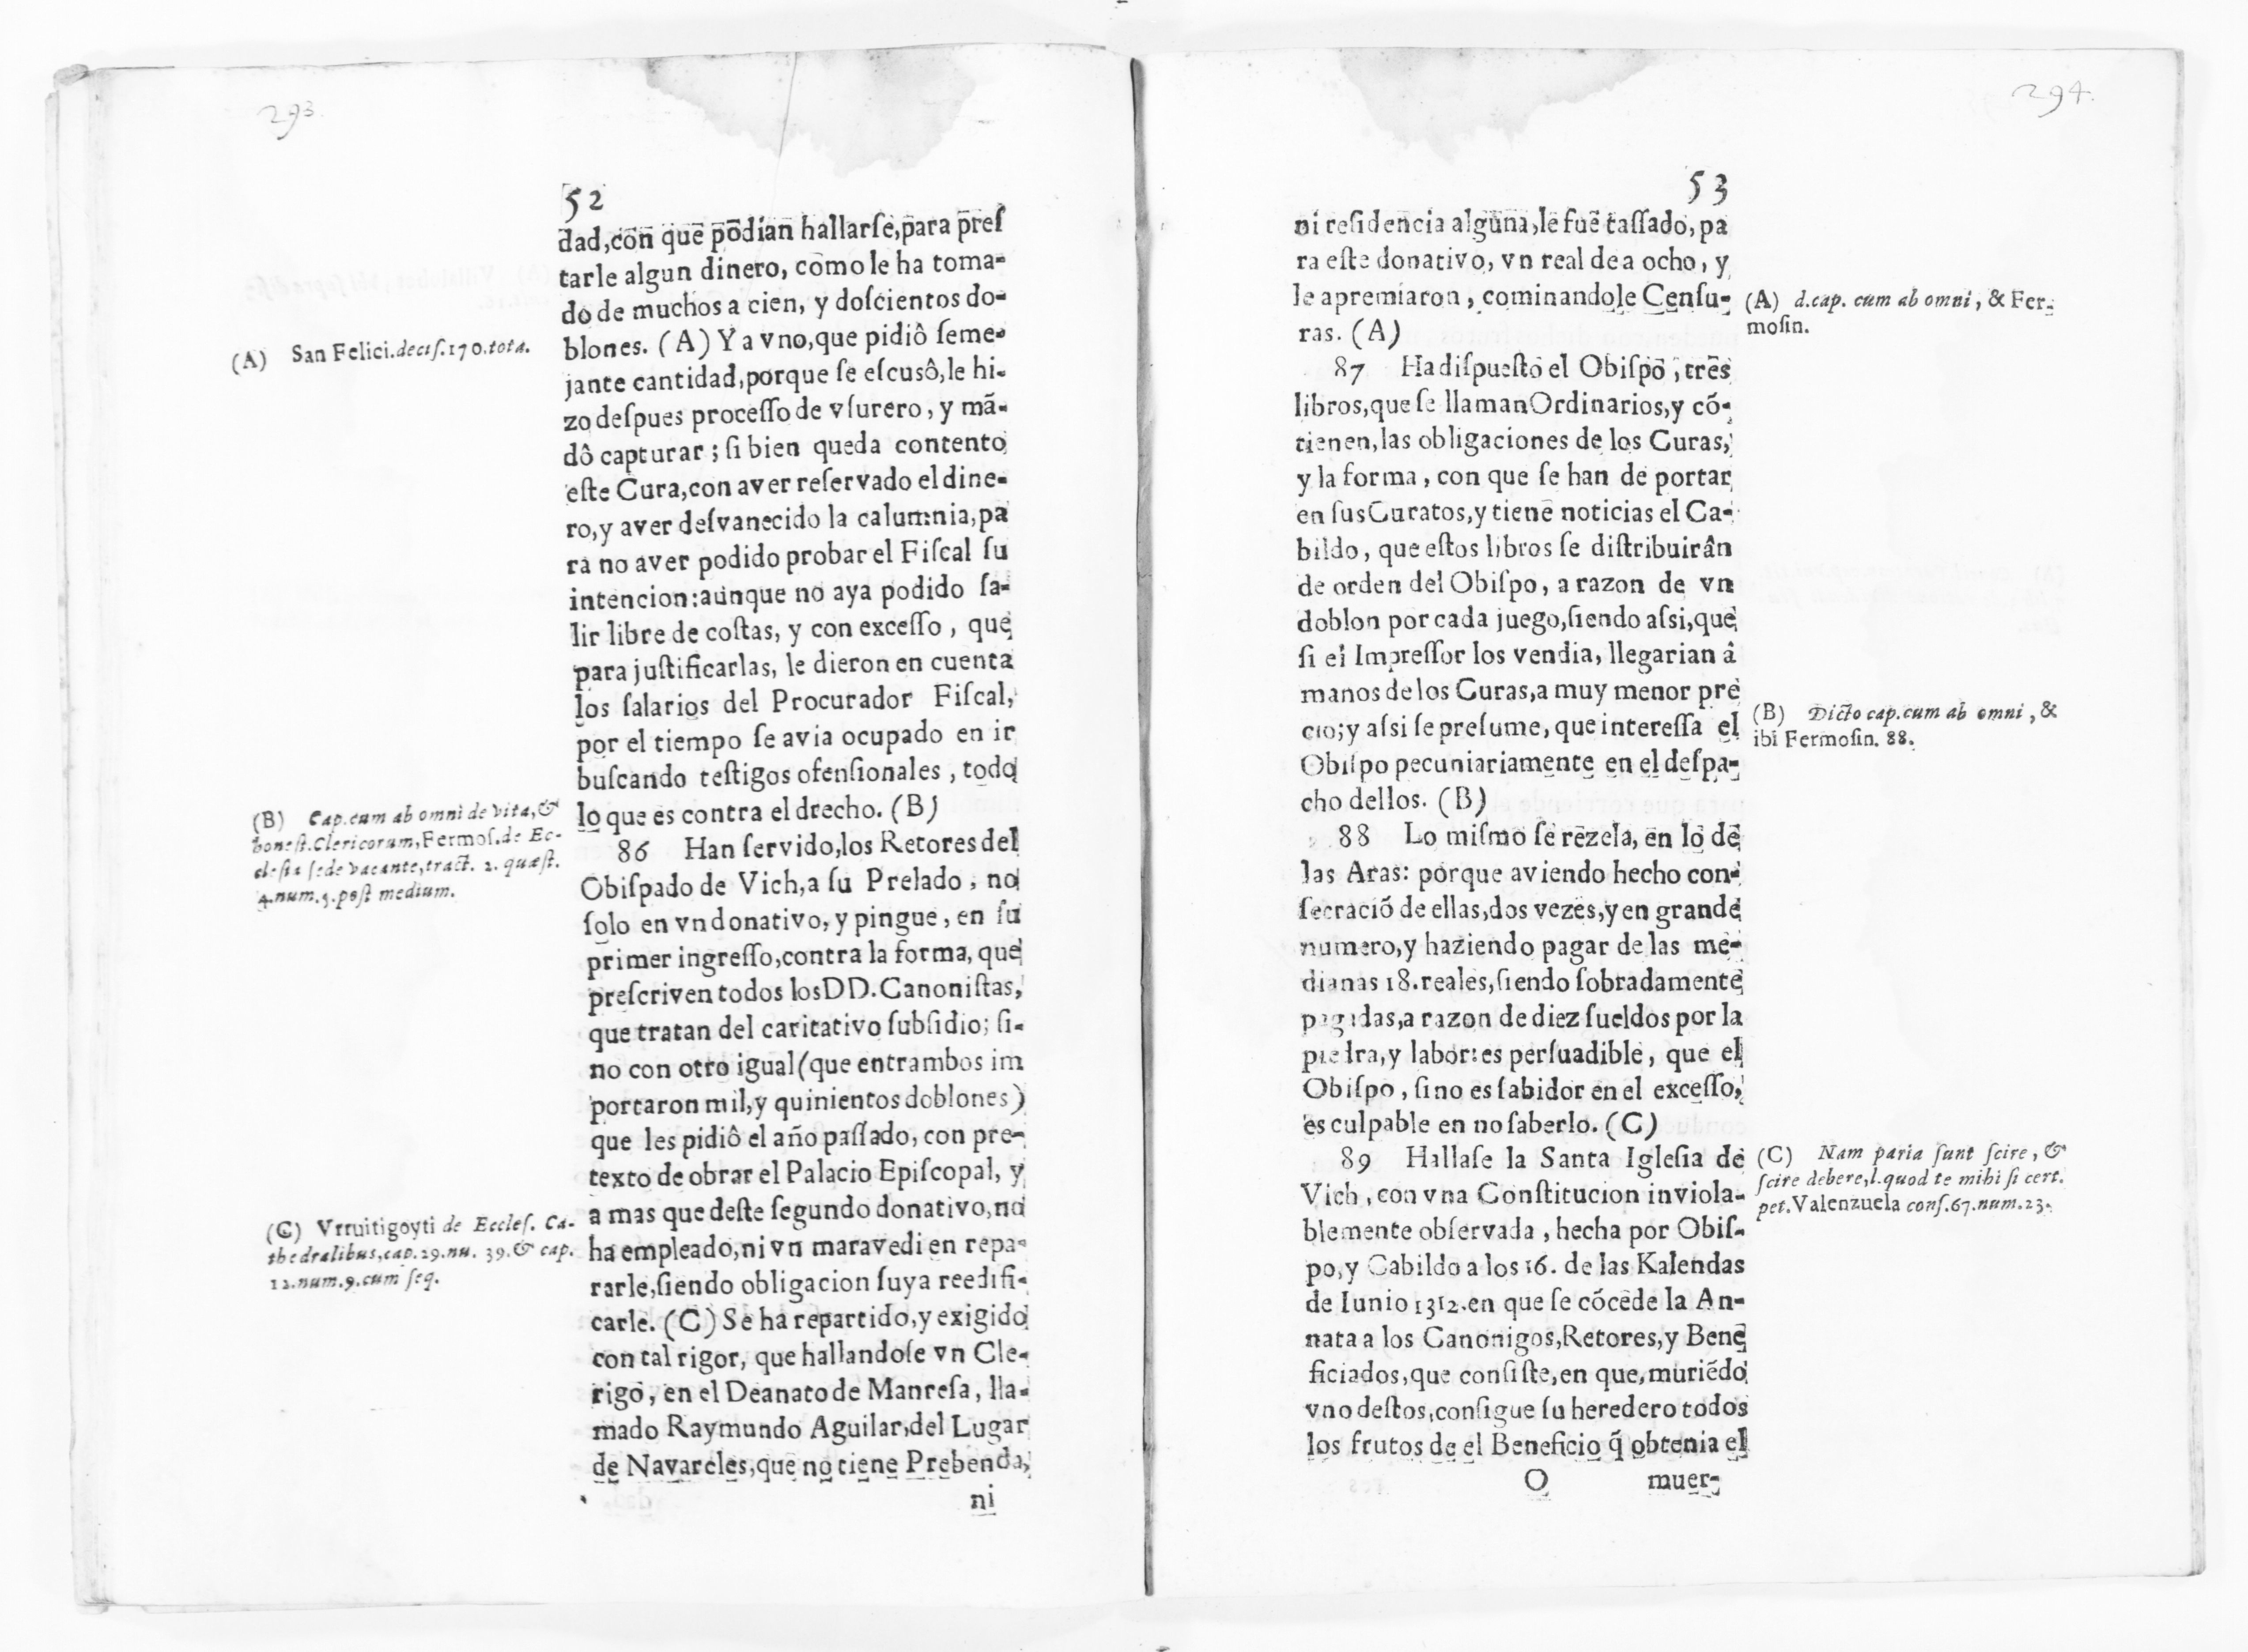 293.
52
dad,con que podian hallarſe,para preſ
tarle algun dinero, como le ha toma-
do de muchos a cien, y doſcientos do-
blones. (A) Y a vno,que pidiô ſeme-
jante cantidad,porque ſe eſcusô,le hi-
zo deſpues proceſſo de vſurero, y mã-
dô capturar; ſi bien queda contento
eſte Cura,con aver reſervado el dine-
ro,y aver deſvanecido la calumnia,pa
ra no aver podido probar el Fiſcal ſu
intencion:aunque no aya podido ſa-
lir libre de coſtas, y con exceſſo, que
para juſtificarlas, le dieron en cuenta
los ſalarios del Procurador Fiſcal,
por el tiempo ſe avia ocupado en ir
buſcando teſtigos ofenſionales, todo
lo que es contra el drecho. (B)
86 Han ſervido,los Retores del
Obiſpado de Vich,a ſu Prelado, no
ſolo en vn donativo, y pingue, en ſu
primer ingreſſo,contra la forma, que
preſcriven todos los DD.Canoniſtas,
que tratan del caritativo ſubſidio; ſi-
no con otro igual (que entrambos im
portaron mil,y quinientos doblones)
que les pidiô el año paſſado, con pre-
texto de obrar el Palacio Epiſcopal, y
a mas que deſte ſegundo donativo,no
ha empleado,ni vn maravedi en repa-
rarle,ſiendo obligacion ſuya reedifi-
carle. (C) Se ha repartido,y exigido
con tal rigor, que hallandoſe vn Cle-
rigo, en el Deanato de Manreſa, lla-
mado Raymundo Aguilar,del Lugar
de Navarcles,que no tiene Prebenda,
ni
(A) San Felici.deciſ.170.tota.
(B) Cap.cum ab omni de vita,&
honeſt.Clericorum,Fermoſ.de Ec-
cleſia ſede vacante,tract. 2. quæſt.
4.num.5.poſt medium.
(C) Vrruitigoyti de Eccleſ. Ca-
thedralibus,cap.29.nu. 39.& cap.
12.num.9.cum ſeq.
294.
53
ni reſidencia alguna,le fue taſſado, pa
ra eſte donativo, vn real de a ocho, y
le apremiaron, cominandole Cenſu-
ras. (A)
87 Ha diſpueſto el Obiſpo, tres
libros,que ſe llaman Ordinarios,y cõ-
tienen,las obligaciones de los Curas,
y la forma, con que ſe han de portar
en ſus Curatos,y tienẽ noticias el Ca-
bildo, que eſtos libros ſe diſtribuirân
de orden del Obiſpo, a razon de vn
doblon por cada juego,ſiendo aſsi,que
ſi el Impreſſor los vendia, llegarian â
manos de los Curas,a muy menor pre
cio;y aſsi ſe preſume, que intereſſa el
Obiſpo pecuniariamente en el deſpa-
cho dellos. (B)
88 Lo miſmo ſe rezela, en lo de
las Aras: porque aviendo hecho con-
ſecraciõ de ellas,dos vezes,y en grande
numero,y haziendo pagar de las me-
dianas 18.reales,ſiendo ſobradamente
pagadas,a razon de diez ſueldos por la
piedra,y labor:es perſuadible, que el
Obiſpo, ſino es ſabidor en el exceſſo,
es culpable en no ſaberlo. (C)
89 Hallaſe la Santa Igleſia de
Vich, con vna Conſtitucion inviola-
blemente obſervada, hecha por Obiſ-
po,y Cabildo a los 16. de las Kalendas
de Iunio 1312.en que ſe cõcede la An-
nata a los Canonigos,Retores,y Bene
ficiados,que conſiſte,en que,muriẽdo
vno deſtos,conſigue ſu heredero todos
los frutos de el Beneficio q̃ obtenia el
O muer-
(A) d.cap. cum ab omni, & Fer-
moſin.
(B) Dicto cap.cum ab omni, &
ibi Fermoſin. 88.
(C) Nam paria ſunt ſcire, &
ſcire debere,l.quod te mihi ſi cert.
pet.Valenzuela conſ.67.num.23.